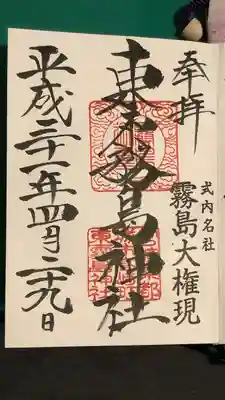 奉拝
式内名社
霧島大権現
東霧島神社
平成三十一年四月二十九日